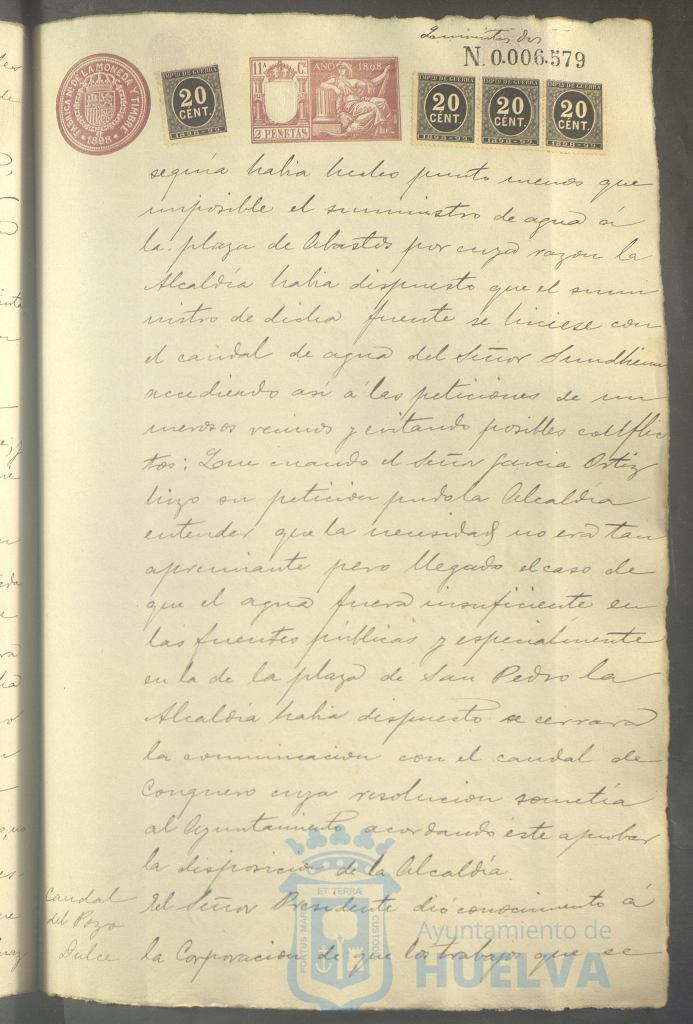 Quinientos dos
N. 0.006.579
FABRICA NL DE LA MONEDA Y TIMBRE
1898
IMPTO DE GUERRA
20
CENT.
1898-99
11ª C.
AÑO 1898
2 PESETAS
IMPTO DE GUERRA
20
CENT.
1898-99
IMPTO DE GUERRA
20
CENT.
1898-99
IMPTO DE GUERRA
20
CENT.
1898-99
sequia habia hecho punto menos que
imposible el suministro de agua á
la plaza de Abastos por cuya razon la
Alcaldía habia dispuesto que el sumi
nistro de dicha fuente se hiciese con
el caudal de agua del Señor Sundheim
accediendo asi á las peticiones de nu
merosos vecinos y evitando posibles conflic
tos: Que cuando el Señor Garcia Ortiz
hizo su peticion pudo la Alcaldía
entender que la necesidad no era tan
apremiante pero llegado el caso de
que el agua fuera insuficiente en
las fuentes públicas y especialmente
en la de la plaza de San Pedro la
Alcaldía habia dispuesto se cerrara
la comunicacion con el caudal de
Conquero cuya resolucion sometía
al Ayuntamiento acordando este aprobar
la disposicion de la Alcaldía.
Caudal
del Pozo
Dulce
El Señor Presidente dió conocimiento á
la Corporacion de que los trabajos que se
PORTUS MARIS
ET TERRÆ
CUSTODIA
Ayuntamiento de
HUELVA